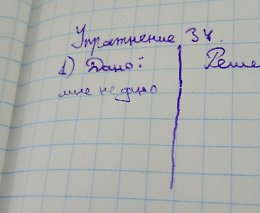 Упражнение 34.
1) Дано:
Реше
мне не дано